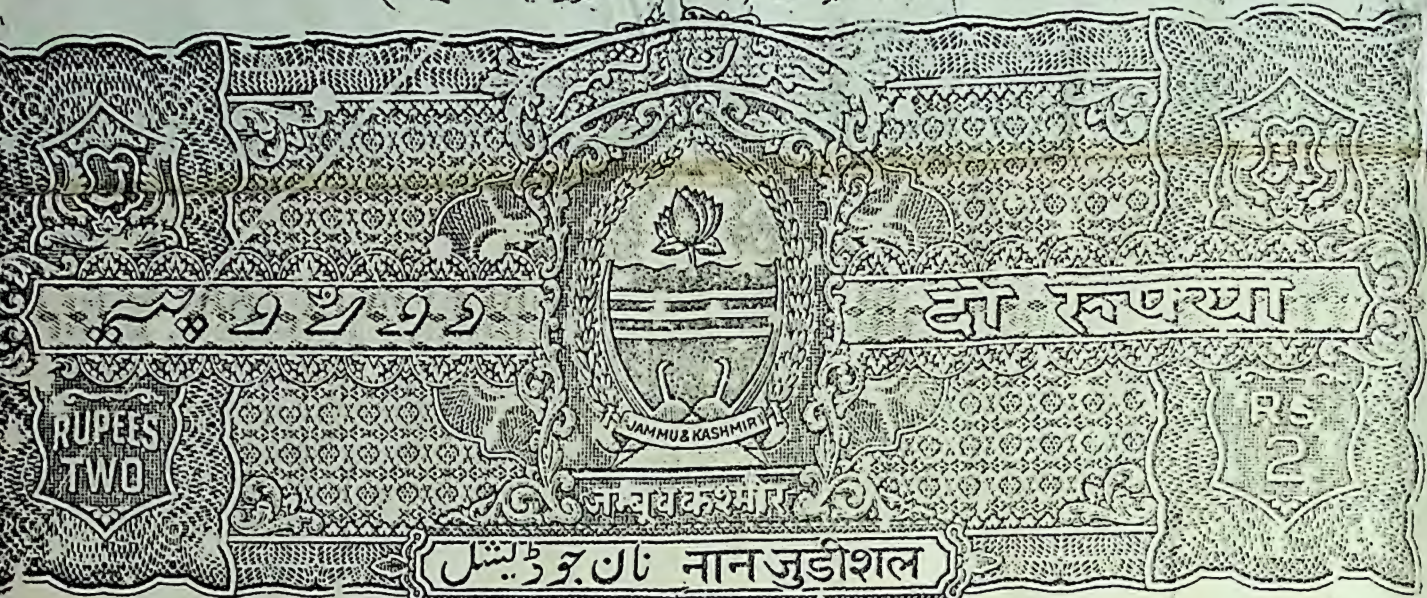 دو روپیہ
दो रूपय्या
RUPEES
TWO
JAMMU & KASHMIR
RS
2
जम्बू व कश्मीर
نان جوڈیشل नान जुडीशल